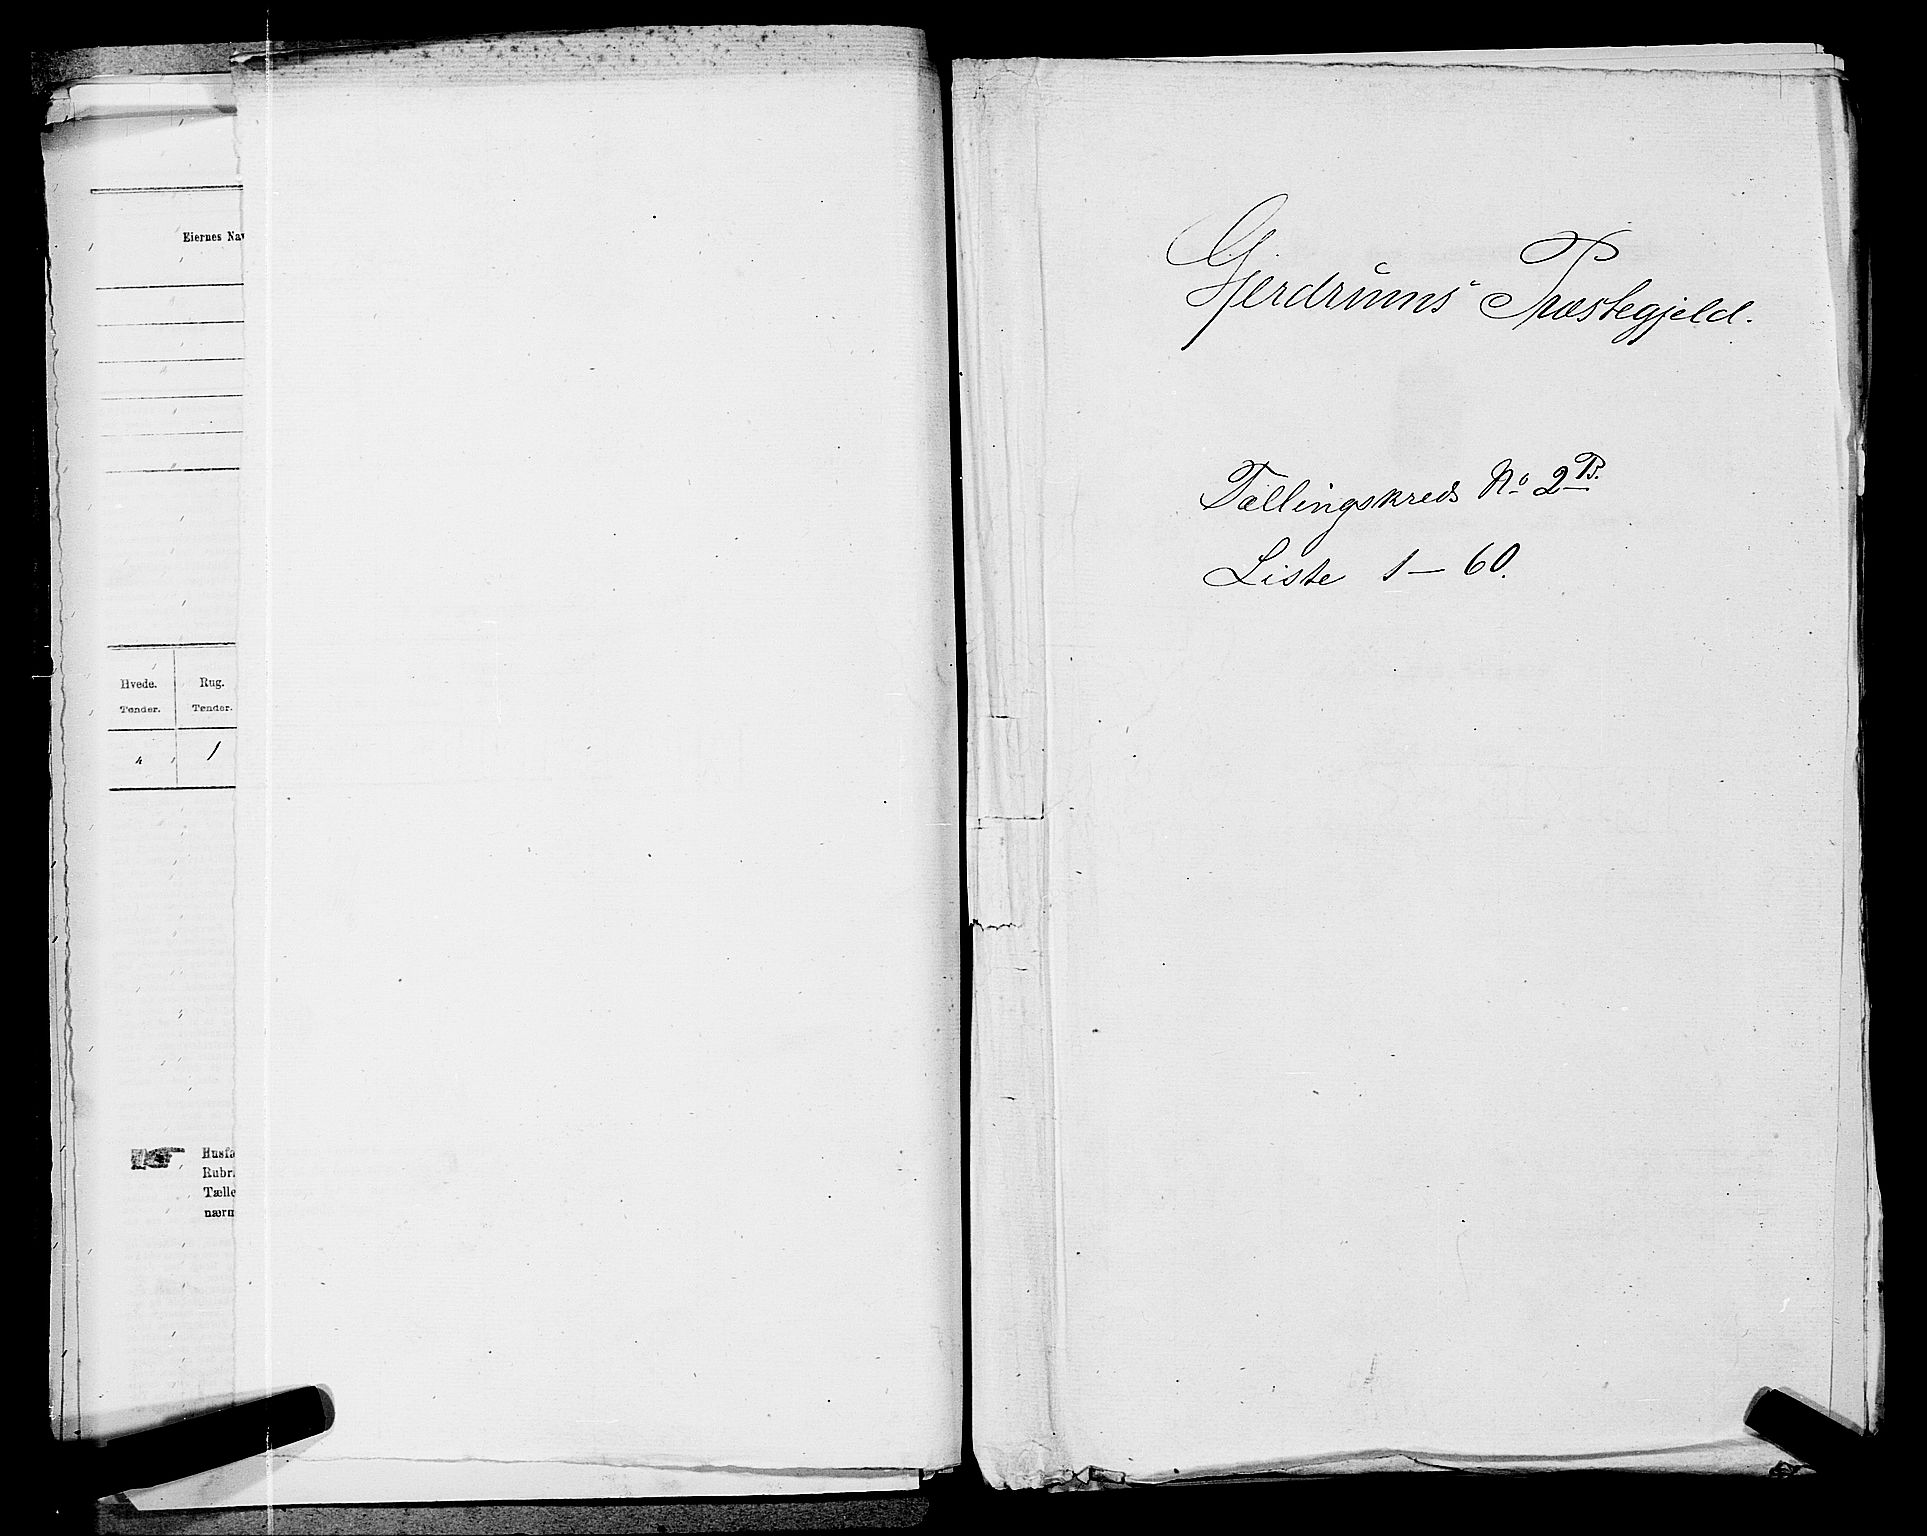 Eiernes Nav
Hvede. Rug.
Tønder. Tønder.
" 1
Husfa
Rubr.
Tælle
nærm
Gjerdrums Præstegjeld.
Tællingskreds No 2B.
Liste 1 — 60.